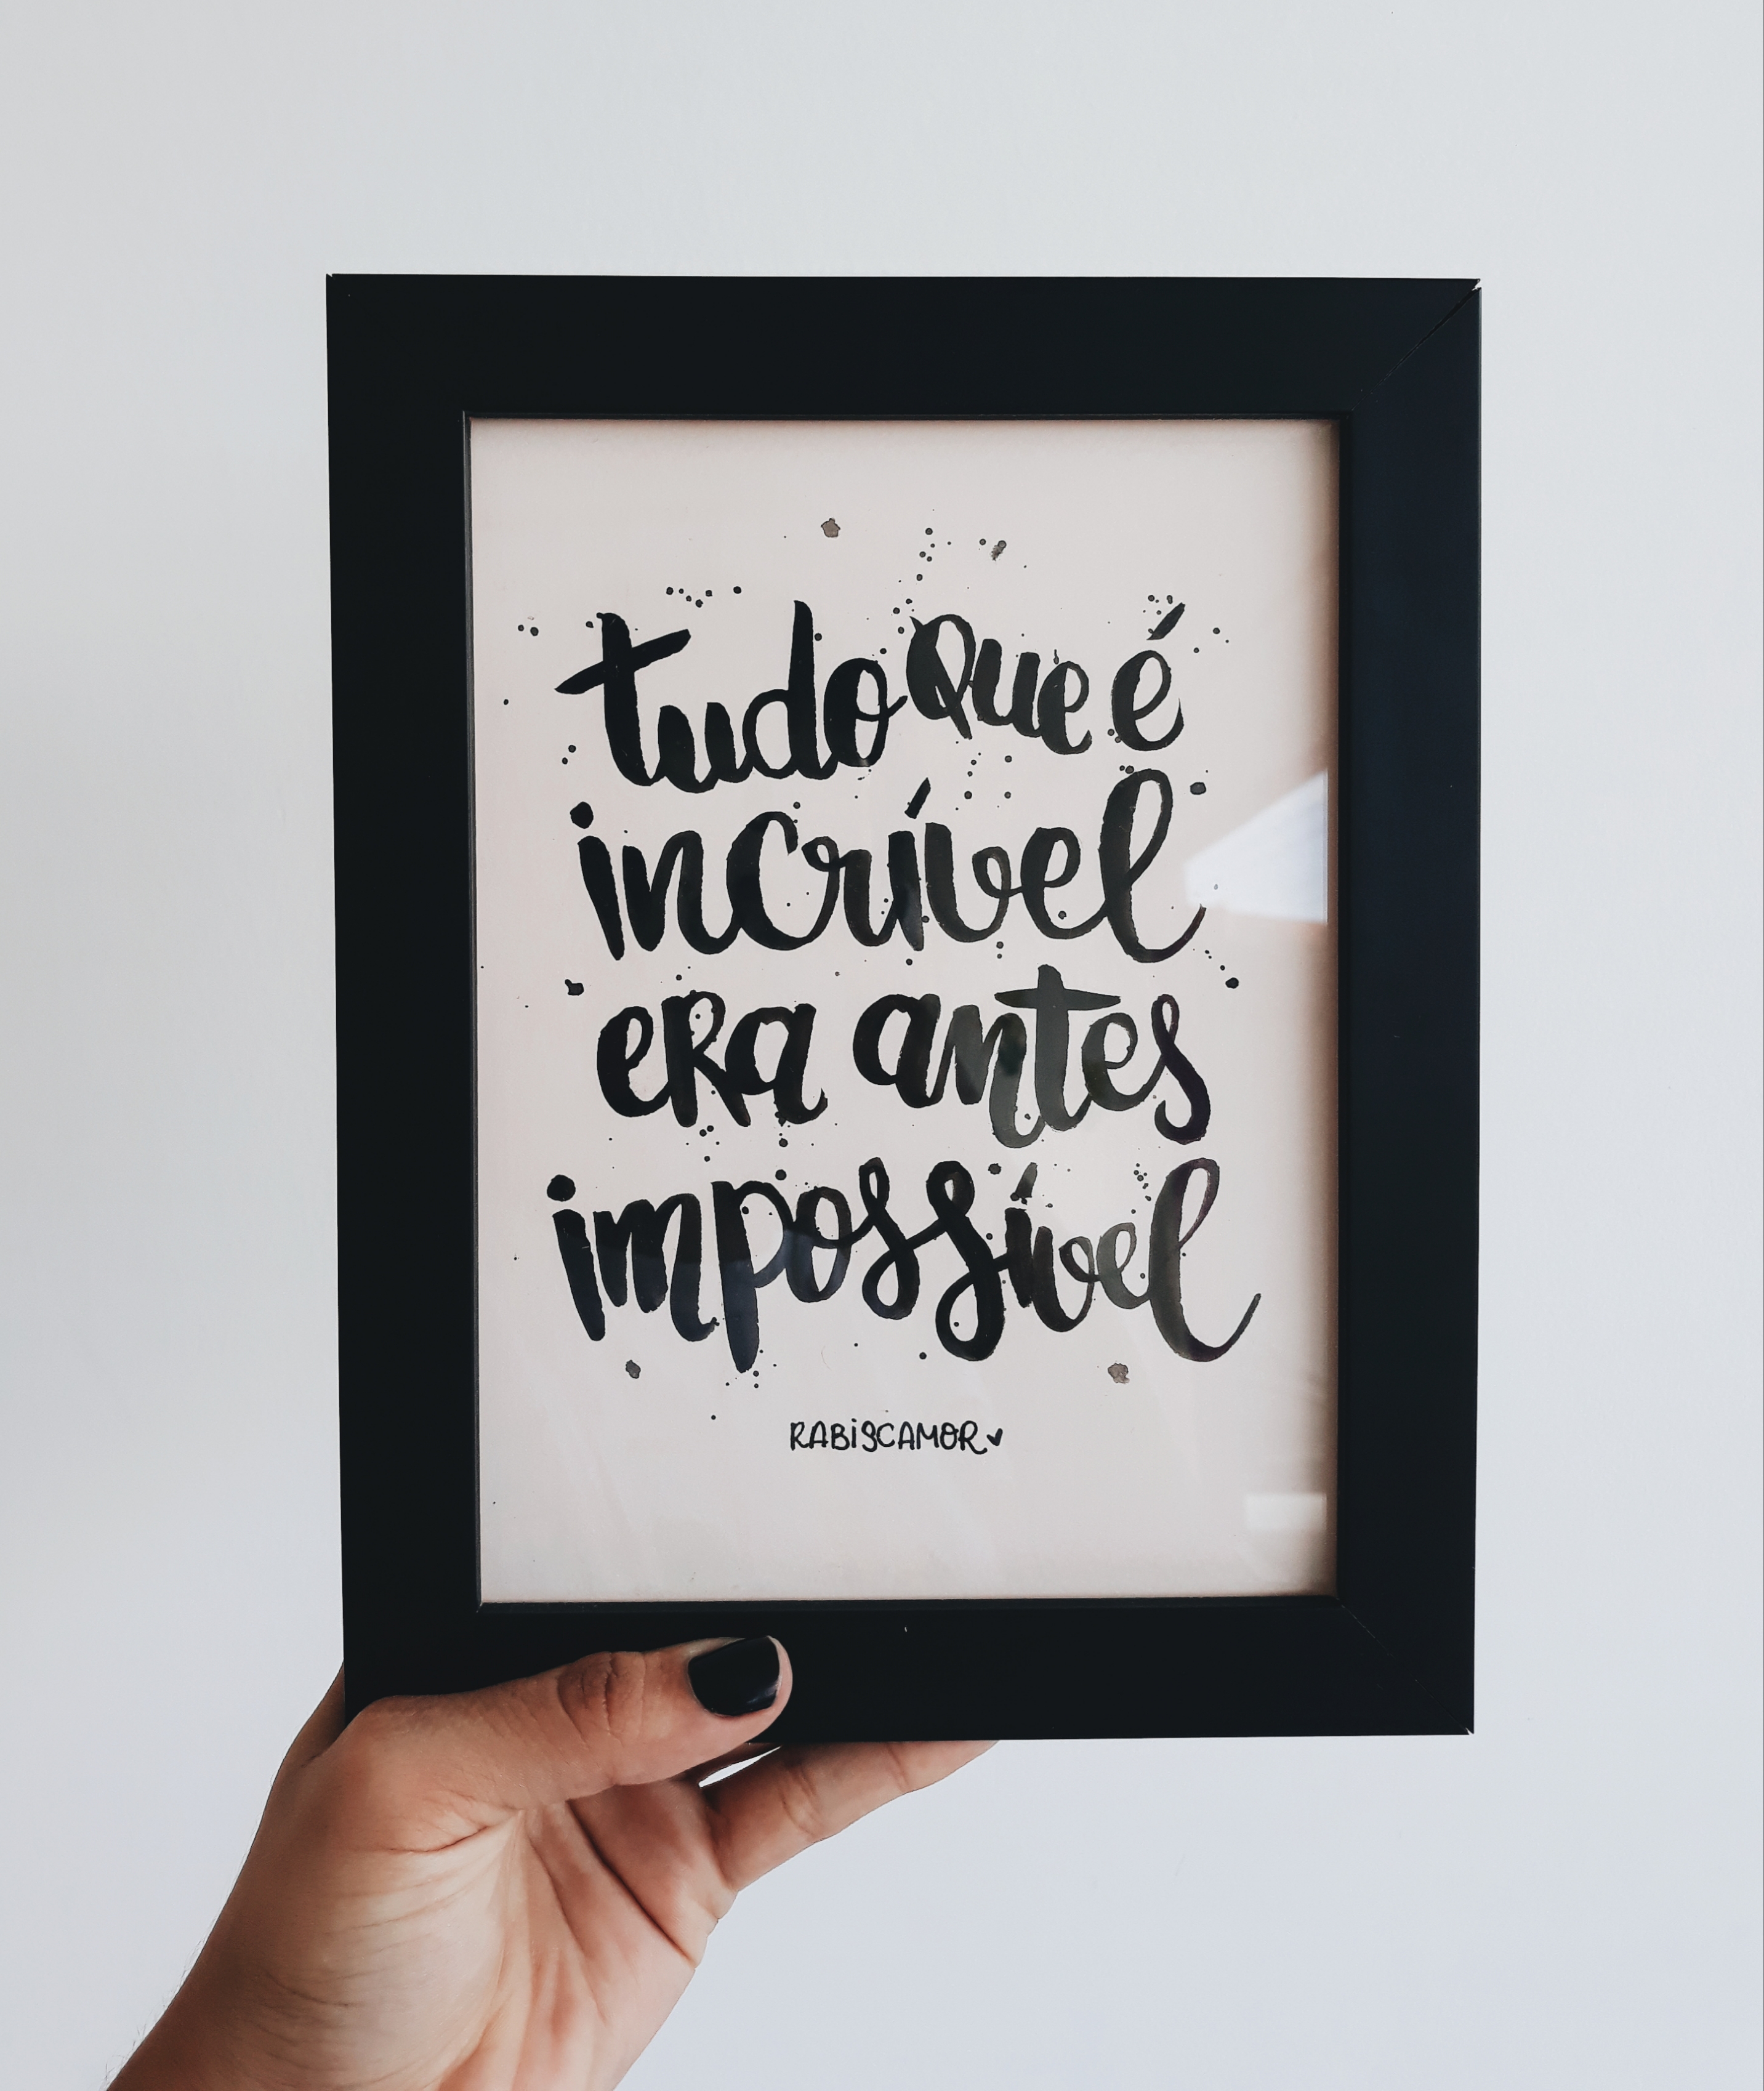 tudo que é
incrível
era antes
impossível
RABISCAMOR